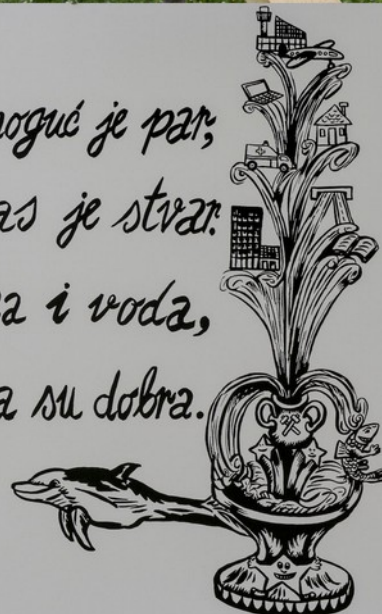 moguć je par,
as je stvar.
a i voda,
a su dobra.